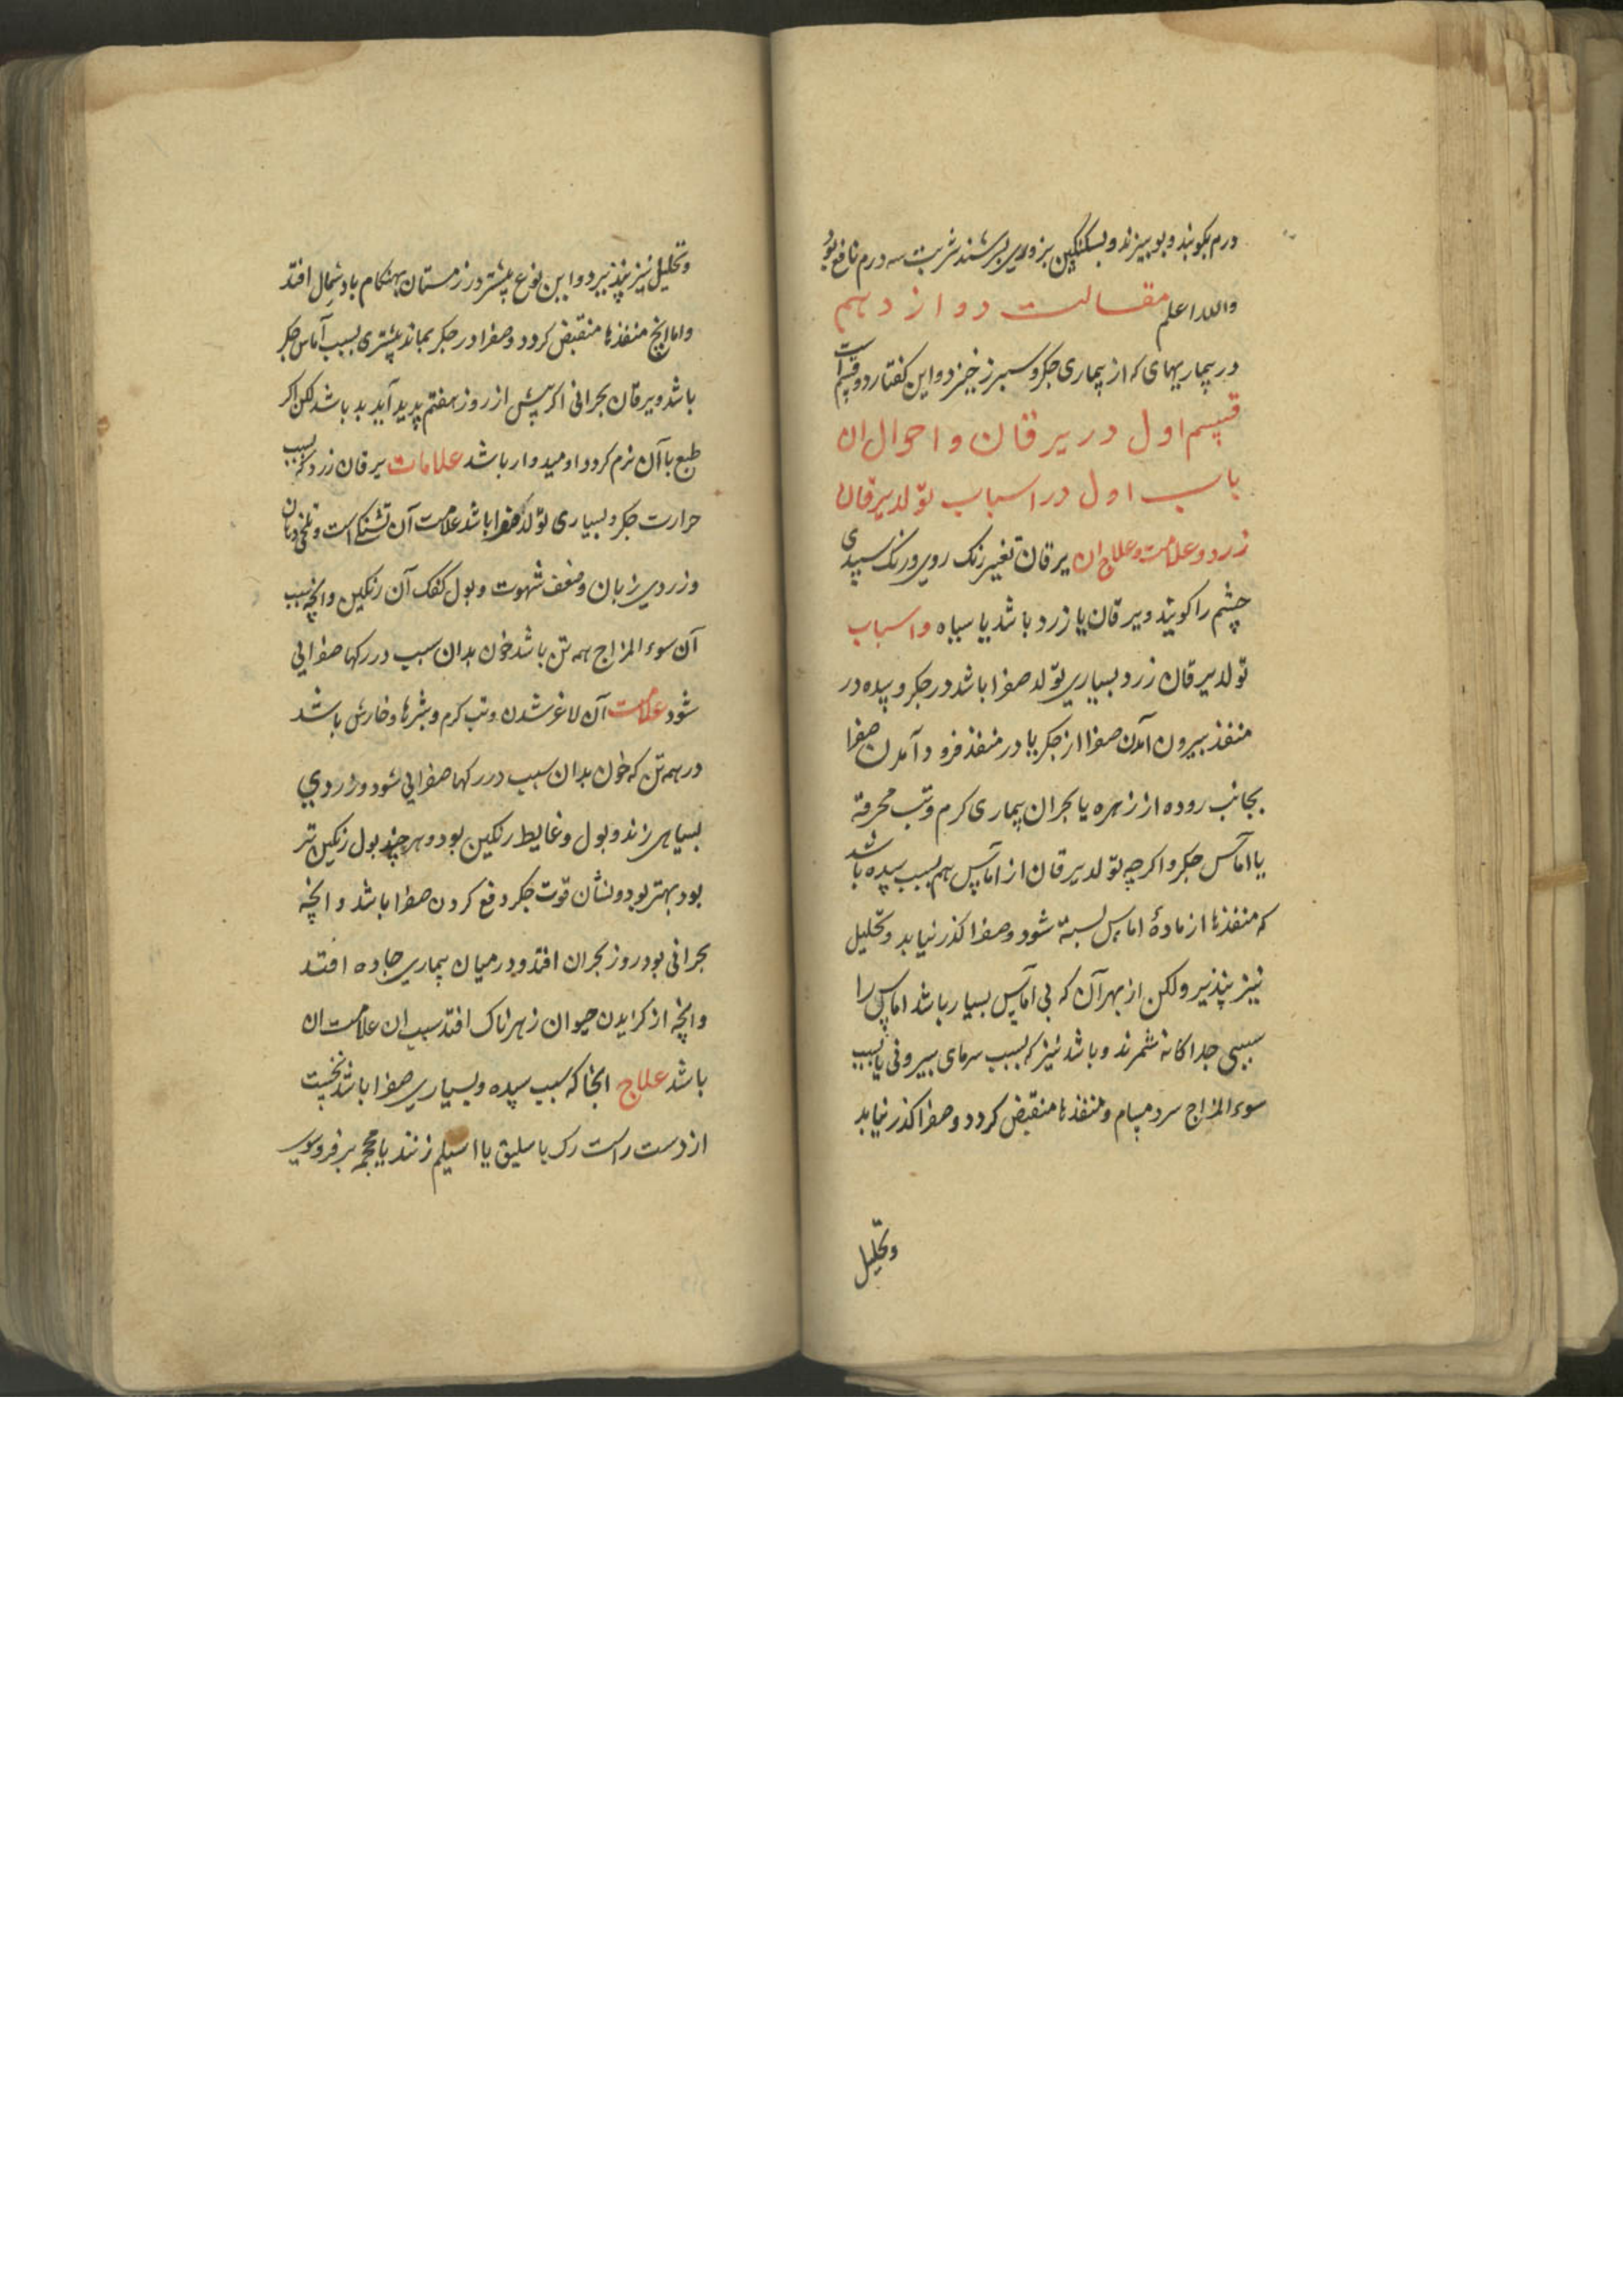 درم بکوبند و بوبیزند و بسکنکبین بزوری بسرشند شربت سه درم نافع بود
والله اعلم مقالت دوازدهم
در بیماریهای که از بیماری جکر و سبرز خیزد و این کفتار دو قسم است
قسم اول در یرقان و احوال ان
باب اول در اسباب تولد یرقان
زرد و علامت و علاج ان یرقان تغیر رنک روی و رنک سپیدی
چشم را کویند و یرقان یا زرد باشد یا سیاه و اسباب
تولد یرقان زرد بسیاری تولد صفرا باشد در جکر و سده در
منفذ بیرون آمدن صفرا از جکر یا در منفذ فرود آمدن صفرا
بجانب روده از زهره یا بحران بیماری کرم و تب محرقه
یا اماس جکر و اکرچه تولد یرقان از اماس هم بسبب سده باشد
که منفذها از مادهٔ اماس بسته شود و صفرا کذر نیابد و تحلیل
نیز نپذیر ولکن از بهر آن که بی اماس بسیار باشد اماس را
سببی جداکانه شمرند و باشد نیز که بسبب سرمای بیرونی یا بسبب
سوء المزاج سرد مسام و منفذها منقبض کردد و صفرا کذر نیابد
وتحلیل
وتحلیل نیز نپذیرد و این نوع بیشتر در زمستان بهنکام باد شمال افتد
واما انچ منفذها منقبض کردد و صفرا در جکر بماند بیشتری بسبب آماس جکر
باشد و یرقان بحرانی اکر پیش از روز هفتم پدید آید بد باشد لکن اکر
طبع با آن نرم کردد اومیدوار باشد علامات یرقان زرد که بسبب
حرارت جکر و بسیاری تولد صفرا باشد علامت آن تشنکی است و تلخی دهان
و زردی زبان و ضعف شهوت و بول کفک آن رنکین وانچه بسبب
آن سوء المزاج همه تن باشد خون بدان سبب در رکها صفرایی
شود علامت آن لاغر شدن و تب کرم و بثرها و خارش باشد
در همه تن که خون بدان سبب در رکها صفرایی شود و زردی
بسیاهی زند و بول و غایط رنکین بود و هر چند بول رنکین تر
بود بهتر بود و نشان قوت جکر و دفع کردن صفرا باشد و انچه
بحرانی بود روز بحران افتد و در میان بیماری حاده افتد
وانچه از کزایدن حیوان زهرناک افتد سبب ان علامت ان
باشد علاج انجا که سبب سده و بسیاری صفرا باشد نخست
از دست راست رک باسلیق یا اسیلم زنند یا محجمه بر فروسوی